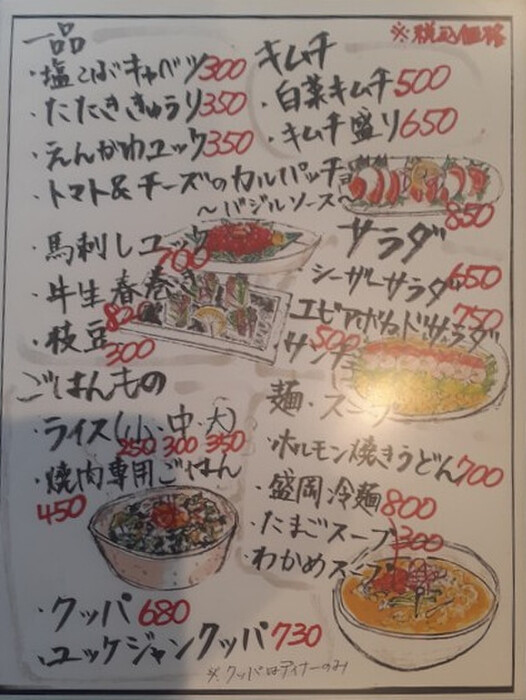 一品
・塩こぶキャベツ300
・たたききゅうり350
・えんがわユッケ350
・トマト&チーズのカルパッチョ
～バジルソース～
850
・馬刺しユッケ
700
・牛生春巻き
820
・枝豆
300
ごはんもの
・ライス(小・中・大)
250 300 350
・焼肉専用ごはん
450
・クッパ 680
・ユッケジャンクッパ 730
※クッパはディナーのみ
※税込価格
キムチ
・白菜キムチ500
・キムチ盛り650
サラダ
・シーザーサラダ
650
エビアボカドサラダ
750
サンチュ
500
麺・スープ
・ホルモン焼きうどん700
・盛岡冷麺800
・たまごスープ
300
・わかめスープ